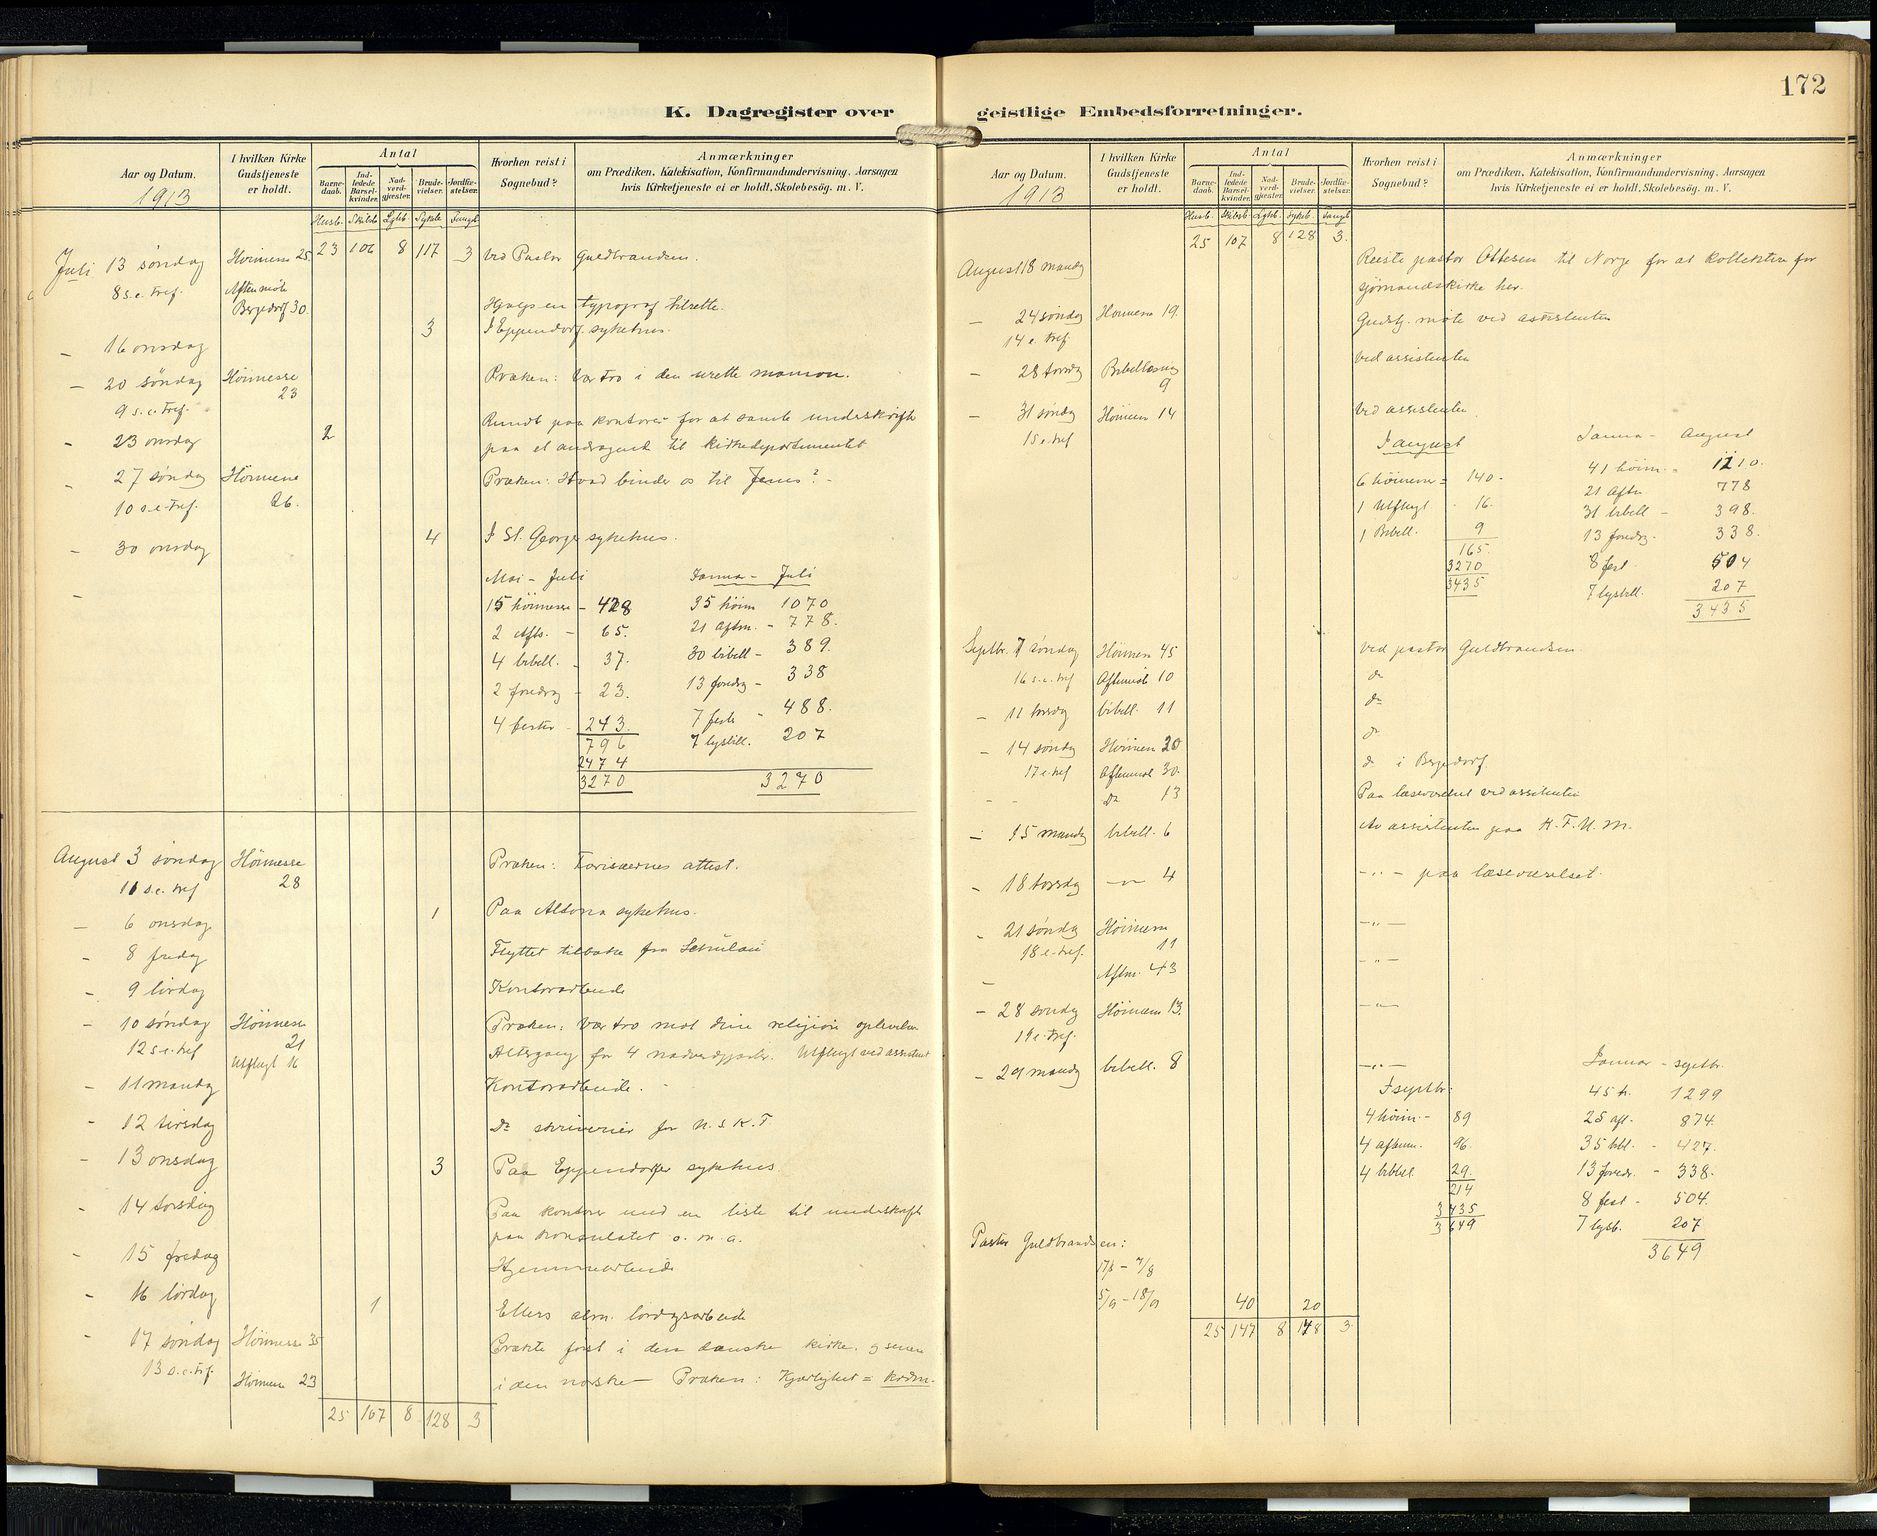 172
K. Dagregister over
geistlige Embedsforretninger.
Aar og Datum.
1913
I hvilken Kirke
Gudstjeneste
er holdt.
Antal
Barne-
daab.
Ind-
ledede
Barsel-
kvinder.
Nad-
verd-
gjester.
Brude-
vielser.
Jordfæ-
stelser.
Hvorhen reist i
Sognebud?
Anmærkninger
om Prædiken, Katekisation, Konfirmandundervisning, Aarsagen
hvis Kirketjeneste ei er holdt, Skolebesøg. m. V.
Husb. Skibsb. Sykb. Fangb.
23 106 8 117 3
Juli 13 søndag Høimesse 25. ved Pastor Guldbrandsen.
8 s.e. tref. Aftenmøte
Bergedorf 30. Hjalp en typograf tilrette.
3 I Eppendorf sykehus.
– 16 onsdag
– 20 søndag Høimesse Præken: Vær tro i den urette mamon.
23
9 s.e. tref.
Rundt paa kontorer for at samle underskrifter
- 23 onsdag 2 paa et andragende til kirkedepartementet
- 27 søndag Høimesse Præken: Hvad binder os til Jesus?
10 s.e. tref. 26.
4 I St. Georgs sykehus.
- 30 onsdag
Mai – Juli Januar – Juli
15 høimesse – 428 35 høim 1070
2 Afts. – 65. 21 Aftm. – 778.
4 bibell. – 37. 30 bibell – 389.
2 foredrag – 23. 13 foredrag – 338
4 fester – 243. 7 feste – 488.
796 7 lysbill. 207
2474
3270 3270
August 3 søndag Høimesse Præken: Farisæernes attest.
11 s.e. tref 28
– 6 onsdag 1 Paa Altona sykehus.
- 8 fredag Flyttet tilbake fra Schulau
- 9 lørdag Kontorarbeide
- 10 søndag Høimesse Præken: Vær tro mot dine religiøse oplevelser
12 s.e. tref 21 Altergang for 4 nadverdgjester. Utflugt ved assistent
Utflugt 16
- 11 mandag Kontorarbeide.
- 12 tirsdag Do skriverier for N.S.K.F.
- 13 onsdag 3 Paa Eppendorfer sykehus.
- 14 torsdag Paa kontorer med en liste til underskrift
paa konsulatet o. m. a.
- 15 fredag Hjemmearbeide
- 16 lørdag 1 Ellers alm. lørdagsarbeide
- 17 søndag Høimesse 35 Prækte først i den danske kirke og senere
13 s.e. tref. Høimesse 23 i den norske – Præken: Kjærlighet =
25 107 8 128 3
Aar og Datum.
1913
I hvilken Kirke
Gudstjeneste
er holdt.
Antal
Barne-
daab.
Ind-
ledede
Barsel-
kvinder.
Nad-
verd-
gjester.
Brude-
vielser.
Jordfæ-
stelser.
Hvorhen reist i
Sognebud?
Anmærkninger
om Prædiken, Katekisation, Konfirmandundervisning, Aarsagen
hvis Kirketjeneste ei er holdt, Skolebesøg. m. V.
Husb. Skibsb. Sykeb. Fangb.
25 107 8 128 3.
August 18 mandag Reiste pastor Ottesen til Norge for at kollektere for
sjømandskirke her.
– 24 søndag Høimesse 19. Gudstj. møte ved assistenten
14 e. tref
– 28 torsdag Bibellæsning ved assistenten
9
– 31 søndag Høimesse 14 ved assistenten.
15 e. tref
I august Januar – August
6 høimesse = 140. 41 høim. – 1210.
1 Utflugt – 16. 21 Aftm 778
1 Bibell. 9 31 bibell – 398.
165. 13 foredrag. 338.
3270 8 fest 504
3435 7 lysbill. 207
3435
Septbr. 7 søndag Høimesse 45 ved pastor Guldbrandsen.
16 s.e. tref Aftenmøte 10 do
– 11 torsdag bibell. 11 do
– 14 søndag Høimesse 20 do
17 e. tref Aftenmøte 30. do i Bergedorf
- - Do 13 Paa læseværelset ved assistenten
– 15 mandag bibell. 6 Av assistenten paa K.F.U.M.
- 18 torsdag –"– 4 –"– paa læseværelset.
- 21 søndag Høimesse –"–
18 e. tref. 11
- Aftm. 43 –"–
– 28 søndag Høimesse 13. –"–
19 e. tref.
– 29 mandag bibell. 8 –"–
Januar – septbr.
I septbr: 45 h. 1299
4 høim – 89 25 aft. – 874.
4 aftenm. 96. 35 bbl. – 427.
4 bibbel. 29. 13 foredr. – 338.
214
3435 8 fest – 504.
3649 7 lysb. 207
3649
Pastor Guldbrandsen:
17/6 – 7/8
5/9 – 18/9 40 20
25 147 8 148 3